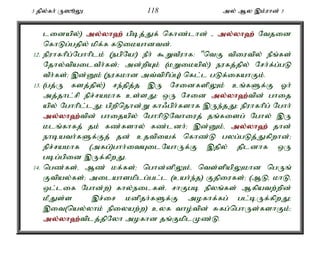 3 தில்கர் ருஸூலு 118 அல் ஆல இம்ரான் 3
டனையில்) அல்லாஹ் பிடித்துக் கொண்டான் . அல்லாஹ் வேதனை
கொடுப்பதில் மிக்க கடுமையானவன்.
12. நிராகரிப்போரிடம் (நபியே) நீர் கூறுவீராக: "வெகு விரைவில் நீங்கள்
தோல்வியடைவீர்கள்; அன்றியும் (மறுமையில்) நரகத்தில் சேர்க்கப்படு
வீர்கள்; இன்னும் (நரகமான அவ்விரிப்பு) கெட்ட படுக்கையாகும்.
13. (பத்ரு களத்தில்) சந்தித்த இரு சேனைகளிலும் உங்களுக்கு ஓர்
அத்தாட்சி நிச்சயமாக உள்ளது; ஒரு சேனை அல்லாஹ்வின் பாதை
யில் போரிட்டது; பிறிதொன்று காஃபிர்களாக இருந்தது; நிராகரிப் போர்
அல்லாஹ்வின் பாதையில் போரிடுவோரைத் தங்களைப் போல் இரு
மடங்காகத் தம் கண்களால் கண்டனர்; இன்னும், அல்லாஹ் தான்
நாடியவர்களுக்குத் தன் உதவியைக் கொண்டு பலப்படுத்துகிறான்;
நிச்சயமாக (அகப்)பார்வையுடையோருக்கு இதில் திடனாக ஒரு
படிப்பினை இருக்கிறது.
14. பெண்கள், ஆண் மக்கள்; பொன்னிலும், வெள்ளியிலுமான பெருங்
குவியல்கள்; அடையாளமிடப்பட்ட (உயர்ந்த) குதிரைகள்; (ஆடு, மாடு,
ஒட்டகை போன்ற) கால்நடைகள், சாகுபடி நிலங்கள் ஆகியவற்றின்
மீதுள்ள இச்சை மனிதர்களுக்கு அழகாக்கப் பட்டிருக்கிறது;
இவை(யெல்லாம் நிலையற்ற) உலக வாழ்வின் சுகப்பொருள்களாகும்;
அல்லாஹ்விடத்திலோ அழகான தங்குமிடமுண்டு.